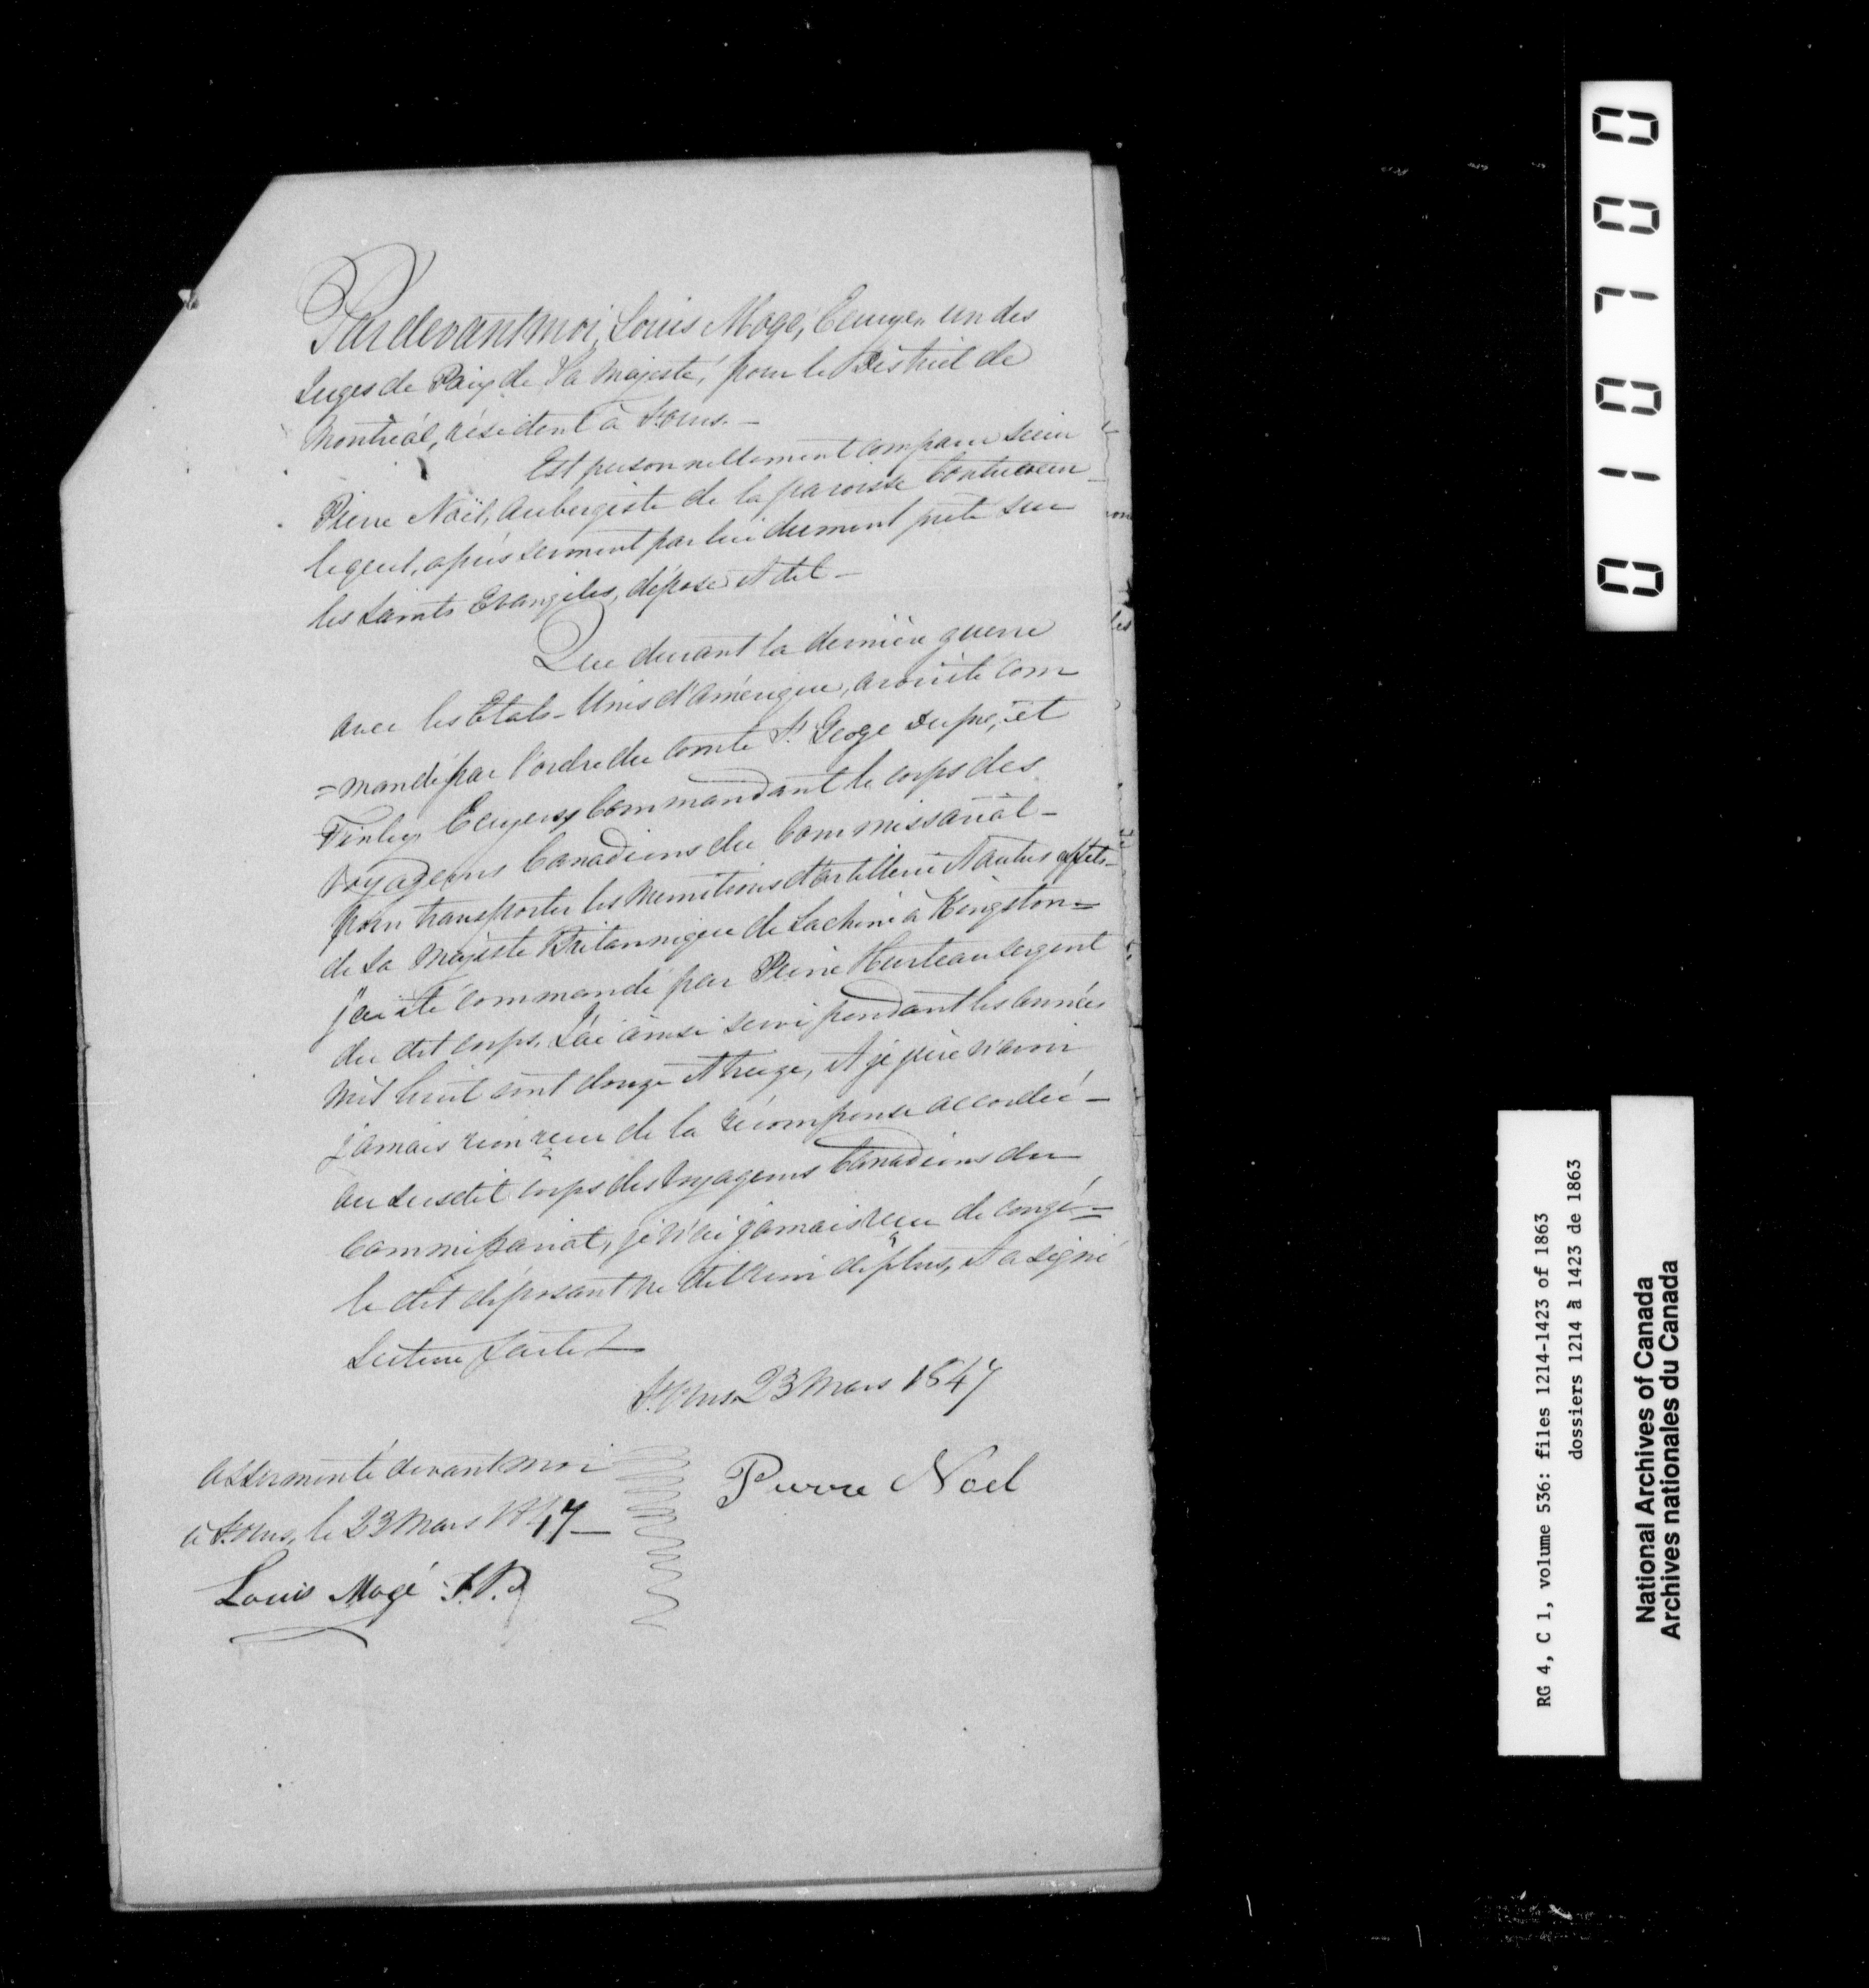 Pardevant moi, Louis Mogé, Ecuyer un des
Juges de Paix de Sa Majesté, pour le District de
Montréal, résident à St. Ours.—
Est personnellement comparu Sieur
Pierre Noël, Aubergiste de la paroisse
lequel, après serment par lui duement prêté sur
les Saints Evangiles, dépose et dit—
Que durant la dernière guerre
avec les Etats-Unis d'Amérique, avoir été com
=mandé par l'ordre du Comte St. George Dupré, et
Finley Ecuyers, Commandant le corps des
Voyageurs Canadiens du Commissariat—
pour transporter les munitions d'artillerie et autres effets
de Sa Majesté Britannique de Lachine à Kingston=
j'ai été commandé par Pierre Hurteau sergent
du dit corps. J'ai ainsi servi pendant les années
mil huit cent douze et treize, et je jure n'avoir
jamais rien reçu de la récompense accordée—
au susdit corps des Voyageurs Canadiens du
Commissariat, je n'ai jamais reçu de congé=
le dit déposant ne dit rien de plus, et a signé
Lecture faite
St. Ours 23 Mars 1847
Assermenté devant moi
à St. Ours, le 23 Mars 1847—
Pierre Noel
Louis Mogé J.P.
010700
RG 4, C 1, volume 536: files 1214-1423 of 1863
dossiers 1214 à 1423 de 1863
National Archives of Canada
Archives nationales du Canada